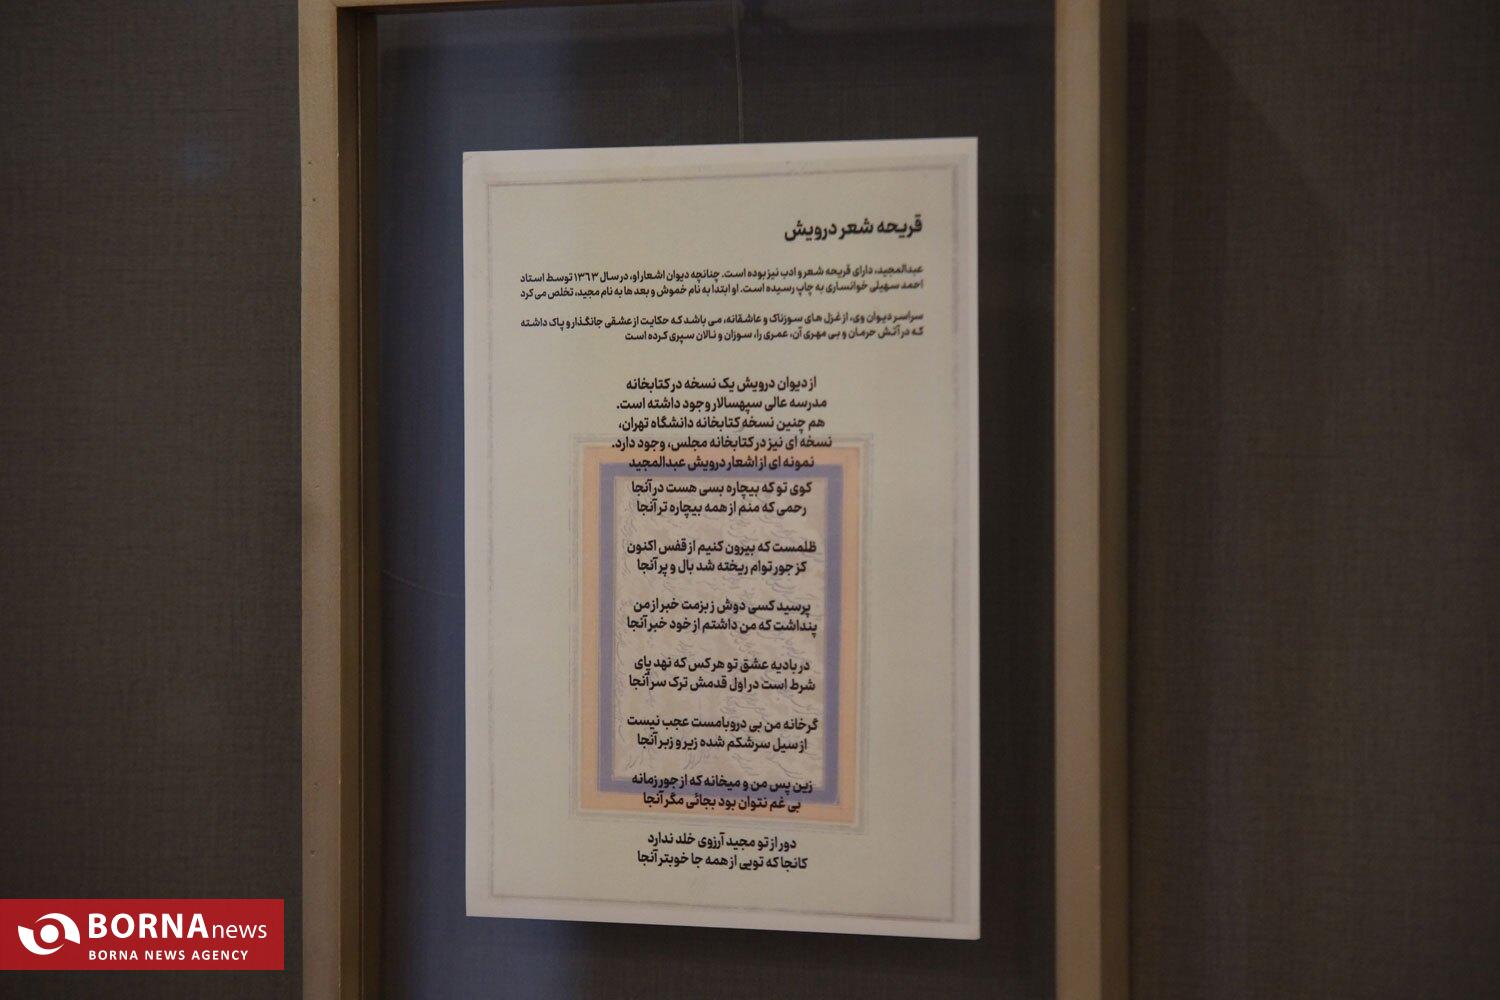 قریحه شعر درویش
عبدالمجید، دارای قریحه شعر و ادب نیز بوده است. چنانچه دیوان اشعار او، در سال ۱۳۶۳ توسط استاد
احمد سهیلی خوانساری به چاپ رسیده است. او ابتدا به نام خموش و بعد ها به نام مجید، تخلص می کرد
سراسر دیوان وی، از غزل های سوزناک و عاشقانه، می باشد که حکایت از عشقی جانگذار و پاک داشته
که در آتش حرمان و بی مهری آن، عمری را، سوزان و نالان سپری کرده است
از دیوان درویش یک نسخه در کتابخانه
مدرسه عالی سپهسالار وجود داشته است.
هم چنین نسخه کتابخانه دانشگاه تهران،
نسخه ای نیز در کتابخانه مجلس، وجود دارد.
نمونه ای از اشعار درویش عبدالمجید
کوی تو که بیچاره بسی هست در آنجا
رحمی که منم از همه بیچاره تر آنجا
ظلمست که بیرون کنیم از قفس اکنون
کز جور توام ریخته شد بال و پر آنجا
پرسید کسی دوش ز بزمت خبر از من
پنداشت که من داشتم از خود خبر آنجا
در بادیه عشق تو هر کس که نهد پای
شرط است در اول قدمش ترک سر آنجا
گر خانه من بی در و بامست عجب نیست
از سیل سرشکم شده زیر و زبر آنجا
زین پس من و میخانه که از جور زمانه
بی غم نتوان بود بجائی مگر آنجا
دور از تو مجید آرزوی خلد ندارد
کانجا که تویی از همه جا خوبتر آنجا
BORNAnews
BORNA NEWS AGENCY